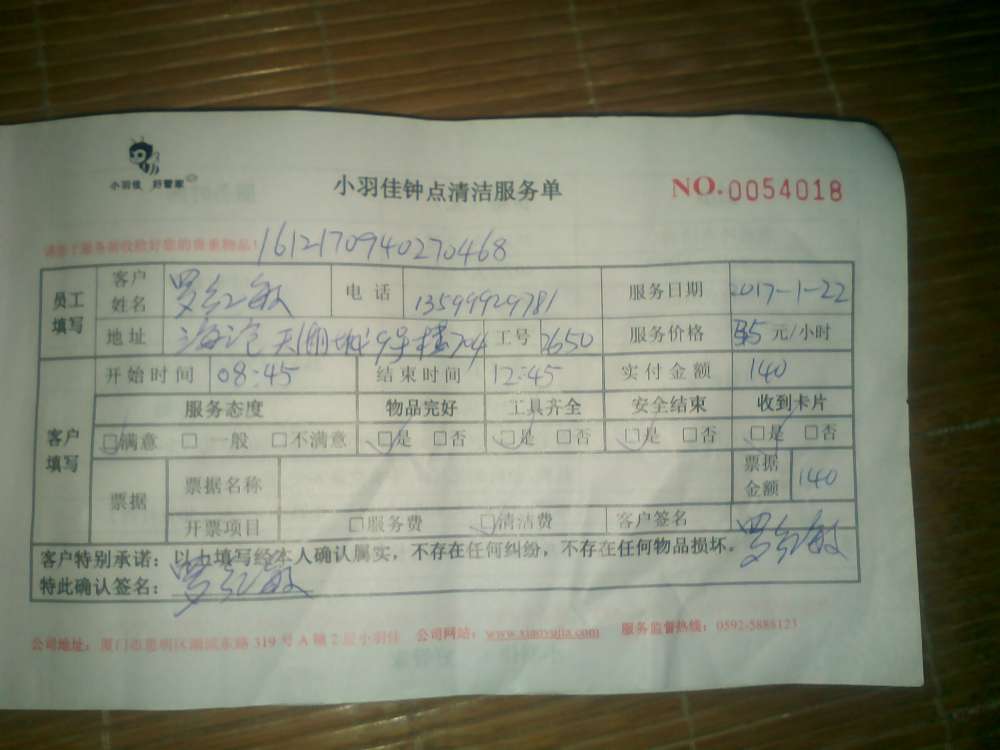 小羽佳 好管家
小羽佳钟点清洁服务单
NO.0054018
请您于服务前收拾好您的贵重物品!
1612170940270468
员工填写 客户姓名 罗红敏 电话 13599929781 服务日期 2017-1-22
地址 海沧天湖城9号楼704 工号 2650 服务价格 35元/小时
客户填写 开始时间 08:45 结束时间 12:45 实付金额 140
服务态度 物品完好 工具齐全 安全结束 收到卡片
☑满意 □一般 □不满意 ☑是 □否 ☑是 □否 ☑是 □否 ☑是 □否
票据 票据名称 票据金额 140
开票项目 □服务费 ☑清洁费 客户签名 罗红敏
客户特别承诺:以上填写经本人确认属实,不存在任何纠纷,不存在任何物品损坏。
特此确认签名:罗红敏
公司地址:厦门市思明区湖滨东路319号A幢2层小羽佳 公司网站:www.xiaoyujia.com 服务监督热线:0592-5888123